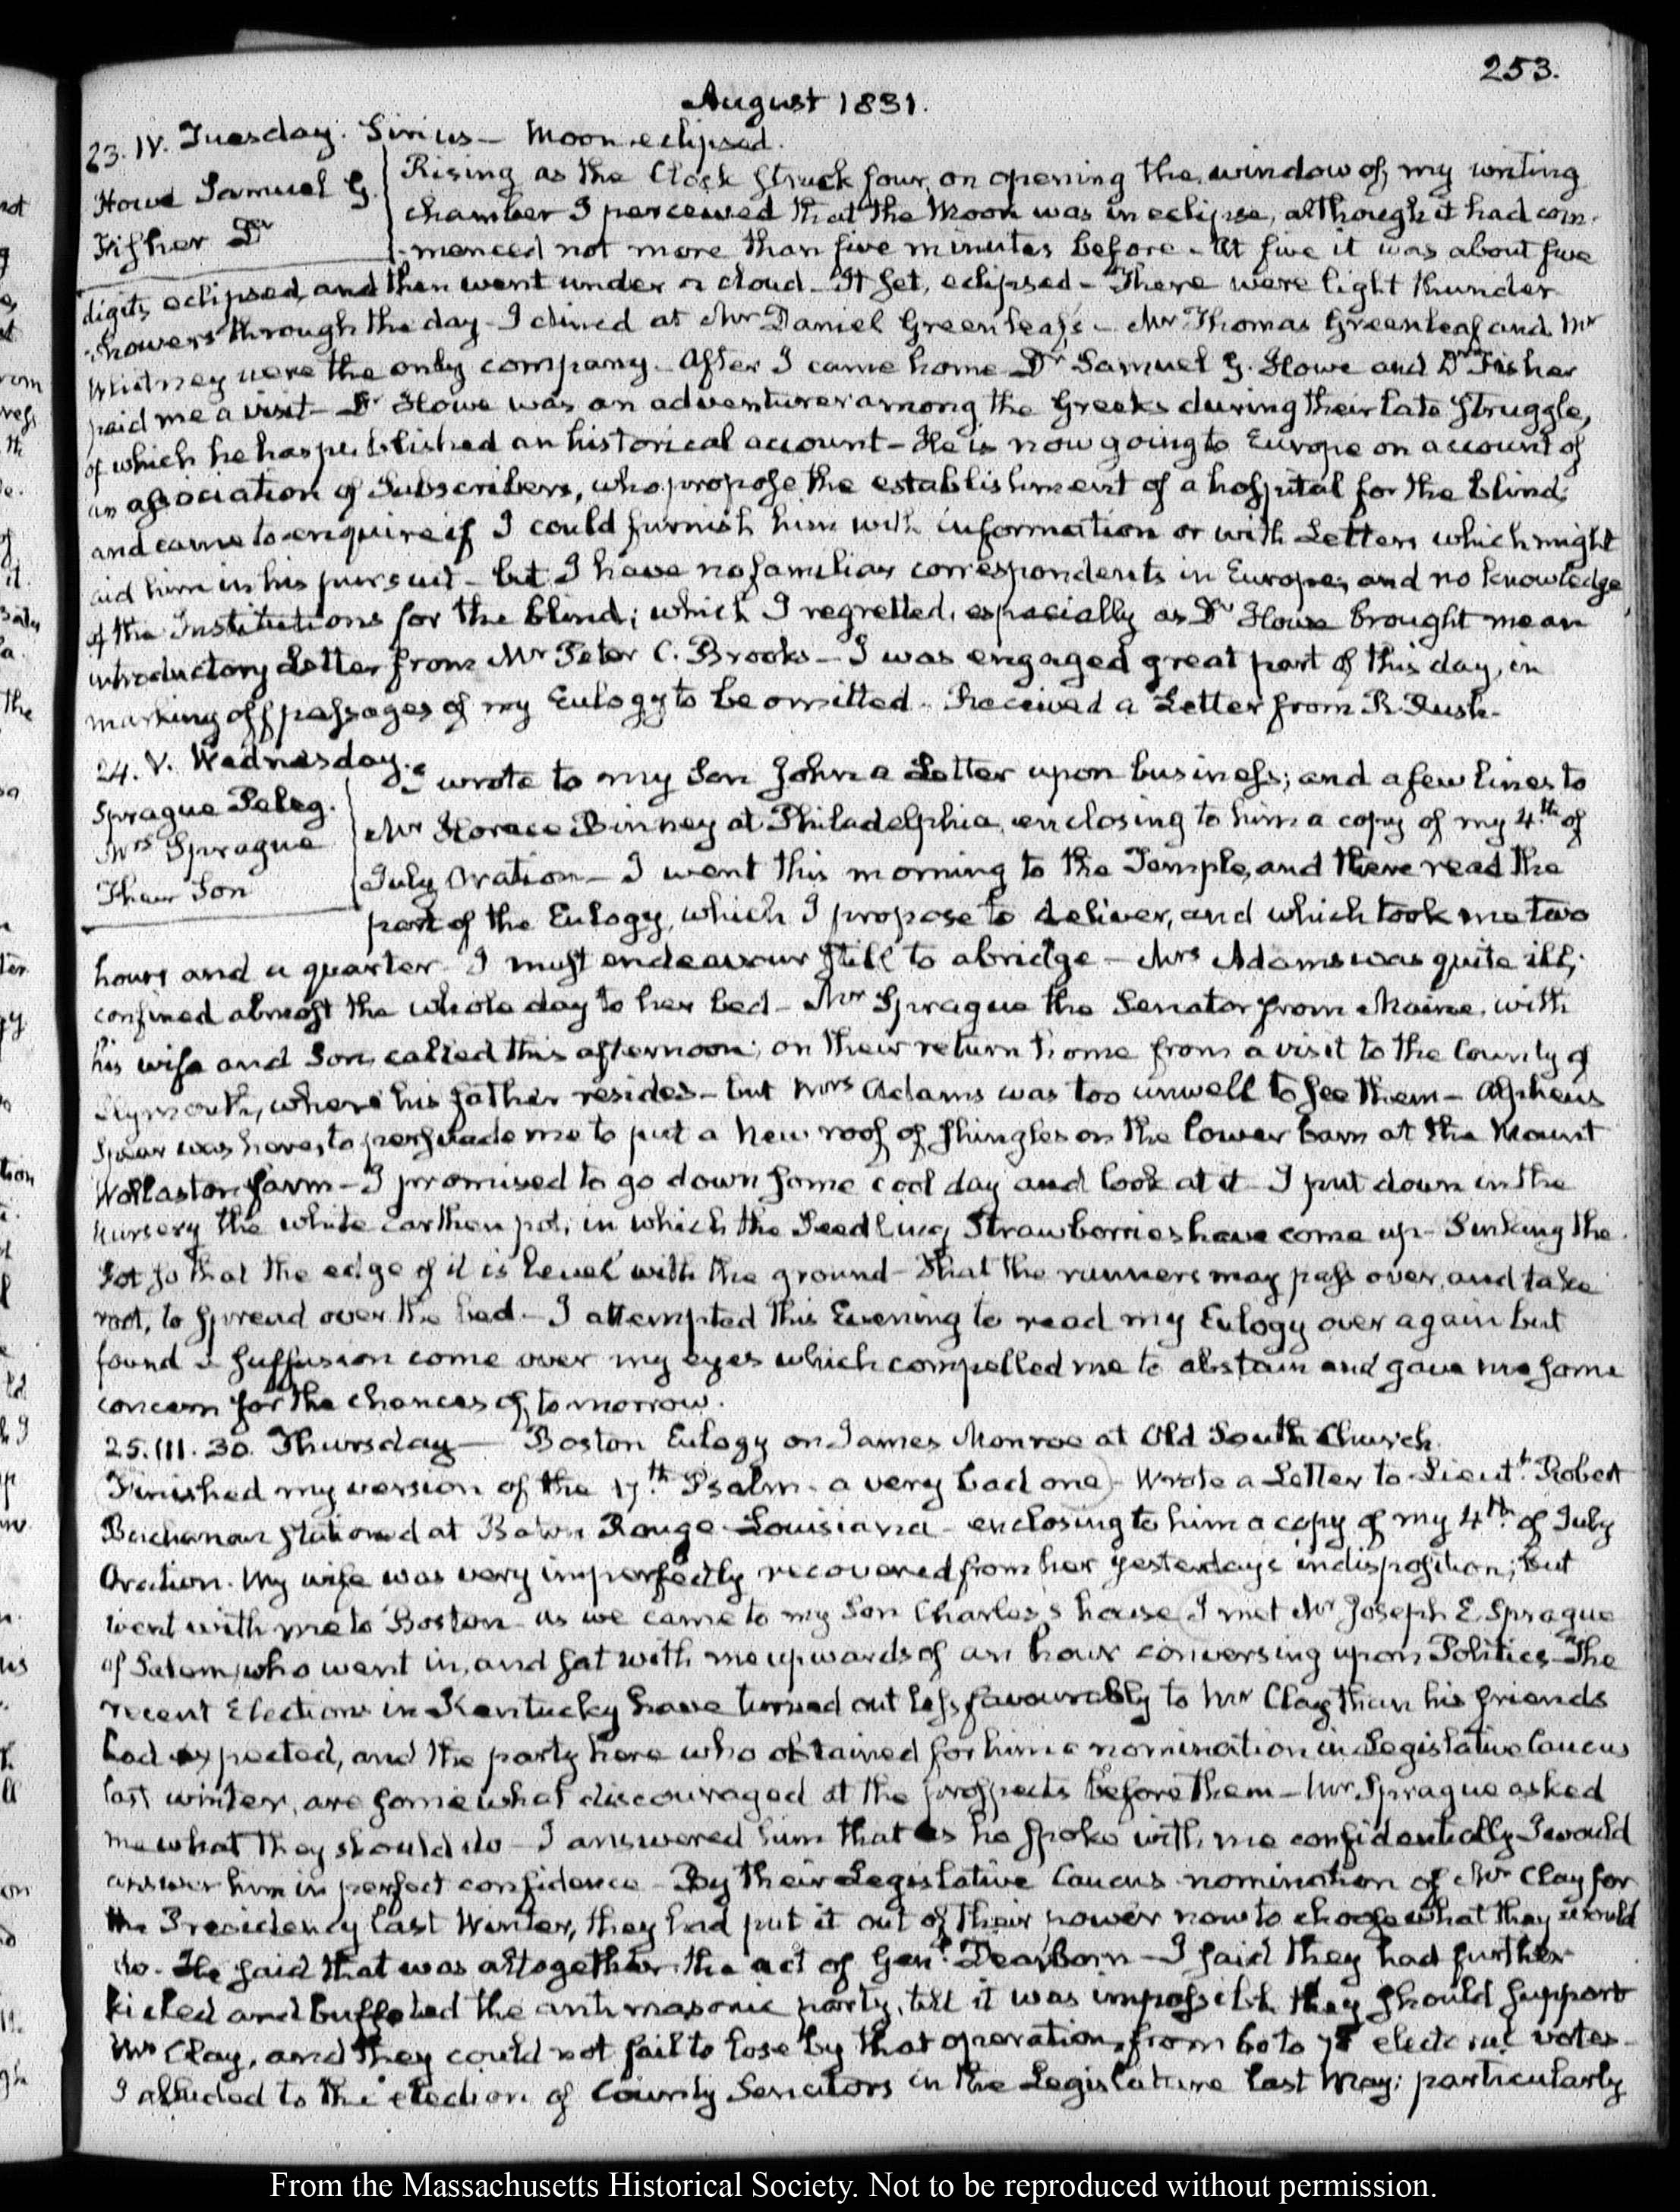 253.
August 1831.
23. IV. Tuesday. Sirius — Moon eclipsed.
Howe Samuel G.
Fisher Dr
Rising as the Clock struck four, on opening the window of my writing
chamber I perceived that the Moon was in eclipse, although it had com-
-menced not more than five minutes before - At five it was about five
digits eclipsed, and then went under a cloud - It set, eclipsed - There were light thunder
showers through the day - I dined at Mr Daniel Greenleaf's - Mr Thomas Greenleaf and Mr
Whitney were the only company. After I came home Dr Samuel G. Howe and Dr Fisher
paid me a visit - Dr Howe was an adventurer among the Greeks during their late struggle,
of which he has published an historical account - He is now going to Europe on account of
an association of Subscribers, who propose the establishment of a hospital for the blind;
and came to enquire if I could furnish him with information or with Letters which might
aid him in his pursuit - but I have no familiar correspondents in Europe, and no knowledge
of the Institutions for the blind; which I regretted, especially as Dr Howe brought me an
introductory Letter from Mr Peter C. Brooks - I was engaged great part of this day, in
marking off passages of my Eulogy to be omitted - Received a Letter from R. Rush -
24. V. Wednesday.
Sprague Peleg.
Mrs Sprague
Their Son
I wrote to my Son John a Letter upon business; and a few lines to
Mr Horace Binney at Philadelphia, enclosing to him a copy of my 4th of
July Oration - I went this morning to the Temple, and there read the
part of the Eulogy, which I propose to deliver, and which took me two
hours and a quarter - I must endeavour still to abridge - Mrs Adams was quite ill;
confined almost the whole day to her bed - Mr Sprague the Senator from Maine, with
his wife and Son, called this afternoon; on their return home from a visit to the County of
Plymouth, where his father resides - but Mrs Adams was too unwell to see them - Alpheus
Spear was here, to persuade me to put a new roof of shingles on the lower barn at the Mount
Wollaston farm - I promised to go down some cool day and look at it - I put down in the
nursery the white earthen pot, in which the Seedling Strawberries have come up - Sinking the
Pot so that the edge of it is level with the ground - that the runners may pass over, and take
root, to spread over the bed - I attempted this Evening to read my Eulogy over again but
found a suffusion come over my eyes which compelled me to abstain and gave me some
concern for the chances of tomorrow.
25. III. 30. Thursday — Boston Eulogy on James Monroe at Old South Church.
Finished my version of the 17th Psalm - a very bad one - Wrote a Letter to Lieutt Robert
Buchanan stationed at Baton Rouge Louisiana - enclosing to him a copy of my 4th of July
Oration. My wife was very imperfectly recovered from her yesterday's indisposition; but
went with me to Boston - as we came to my Son Charles's house I met Mr Joseph E. Sprague
of Salem, who went in, and sat with me upwards of an hour conversing upon Politics - The
recent Elections in Kentucky have turned out less favourably to Mr Clay than his friends
had expected, and the party here who obtained for him a nomination in Legislative Caucus
last winter, are somewhat discouraged at the prospects before them - Mr Sprague asked
me what they should do - I answered him that as he spoke with me confidentially I would
answer him in perfect confidence - By their Legislative Caucus nomination of Mr Clay for
the Presidency last Winter, they had put it out of their power now to choose what they would
do. He said that was altogether the act of Genl. Dearborn - I said they had further
kicked and buffeted the antimasonic party, till it was impossible they should support
Mr Clay, and they could not fail to lose by that operation, from 60 to 75 electoral votes -
I alluded to the election of County Senators in the Legislature last May; particularly
From the Massachusetts Historical Society. Not to be reproduced without permission.